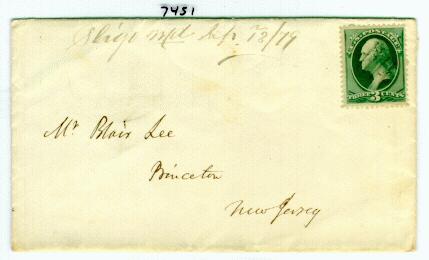 7451
Sligo Md Sep. 18/79
U.S. POSTAGE
THREE 3 CENTS
Mr Blair Lee
Princeton
New Jersey